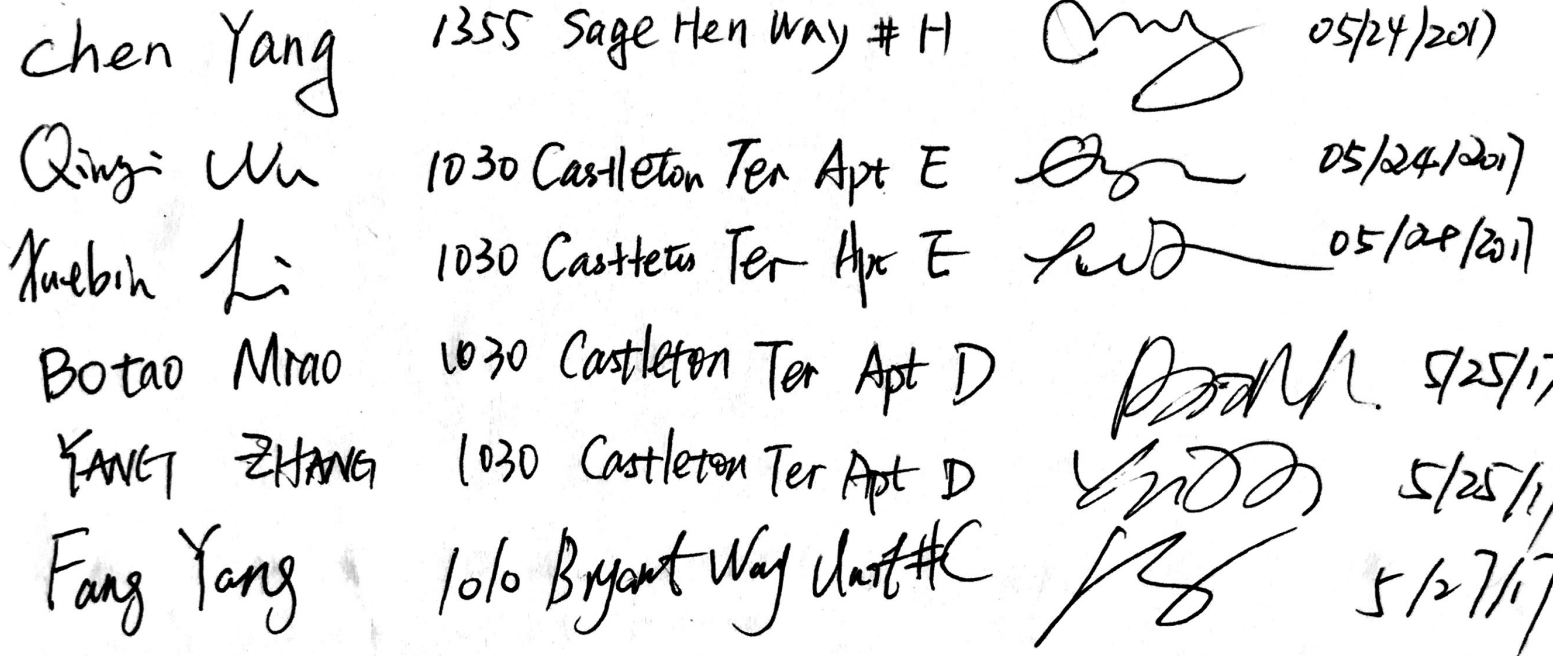 Chen Yang 1355 Sage Hen Way # H 05/24/2017
Qingyi Wu 1030 Castleton Ter Apt E 05/24/2017
Xuebin Li 1030 Castleton Ter Apt E 05/24/2017
Botao Miao 1030 Castleton Ter Apt D 5/25/17
YANG ZHANG 1030 Castleton Ter Apt D 5/25/1
Fang Yang 1010 Bryant Way Unit #C 5/27/17